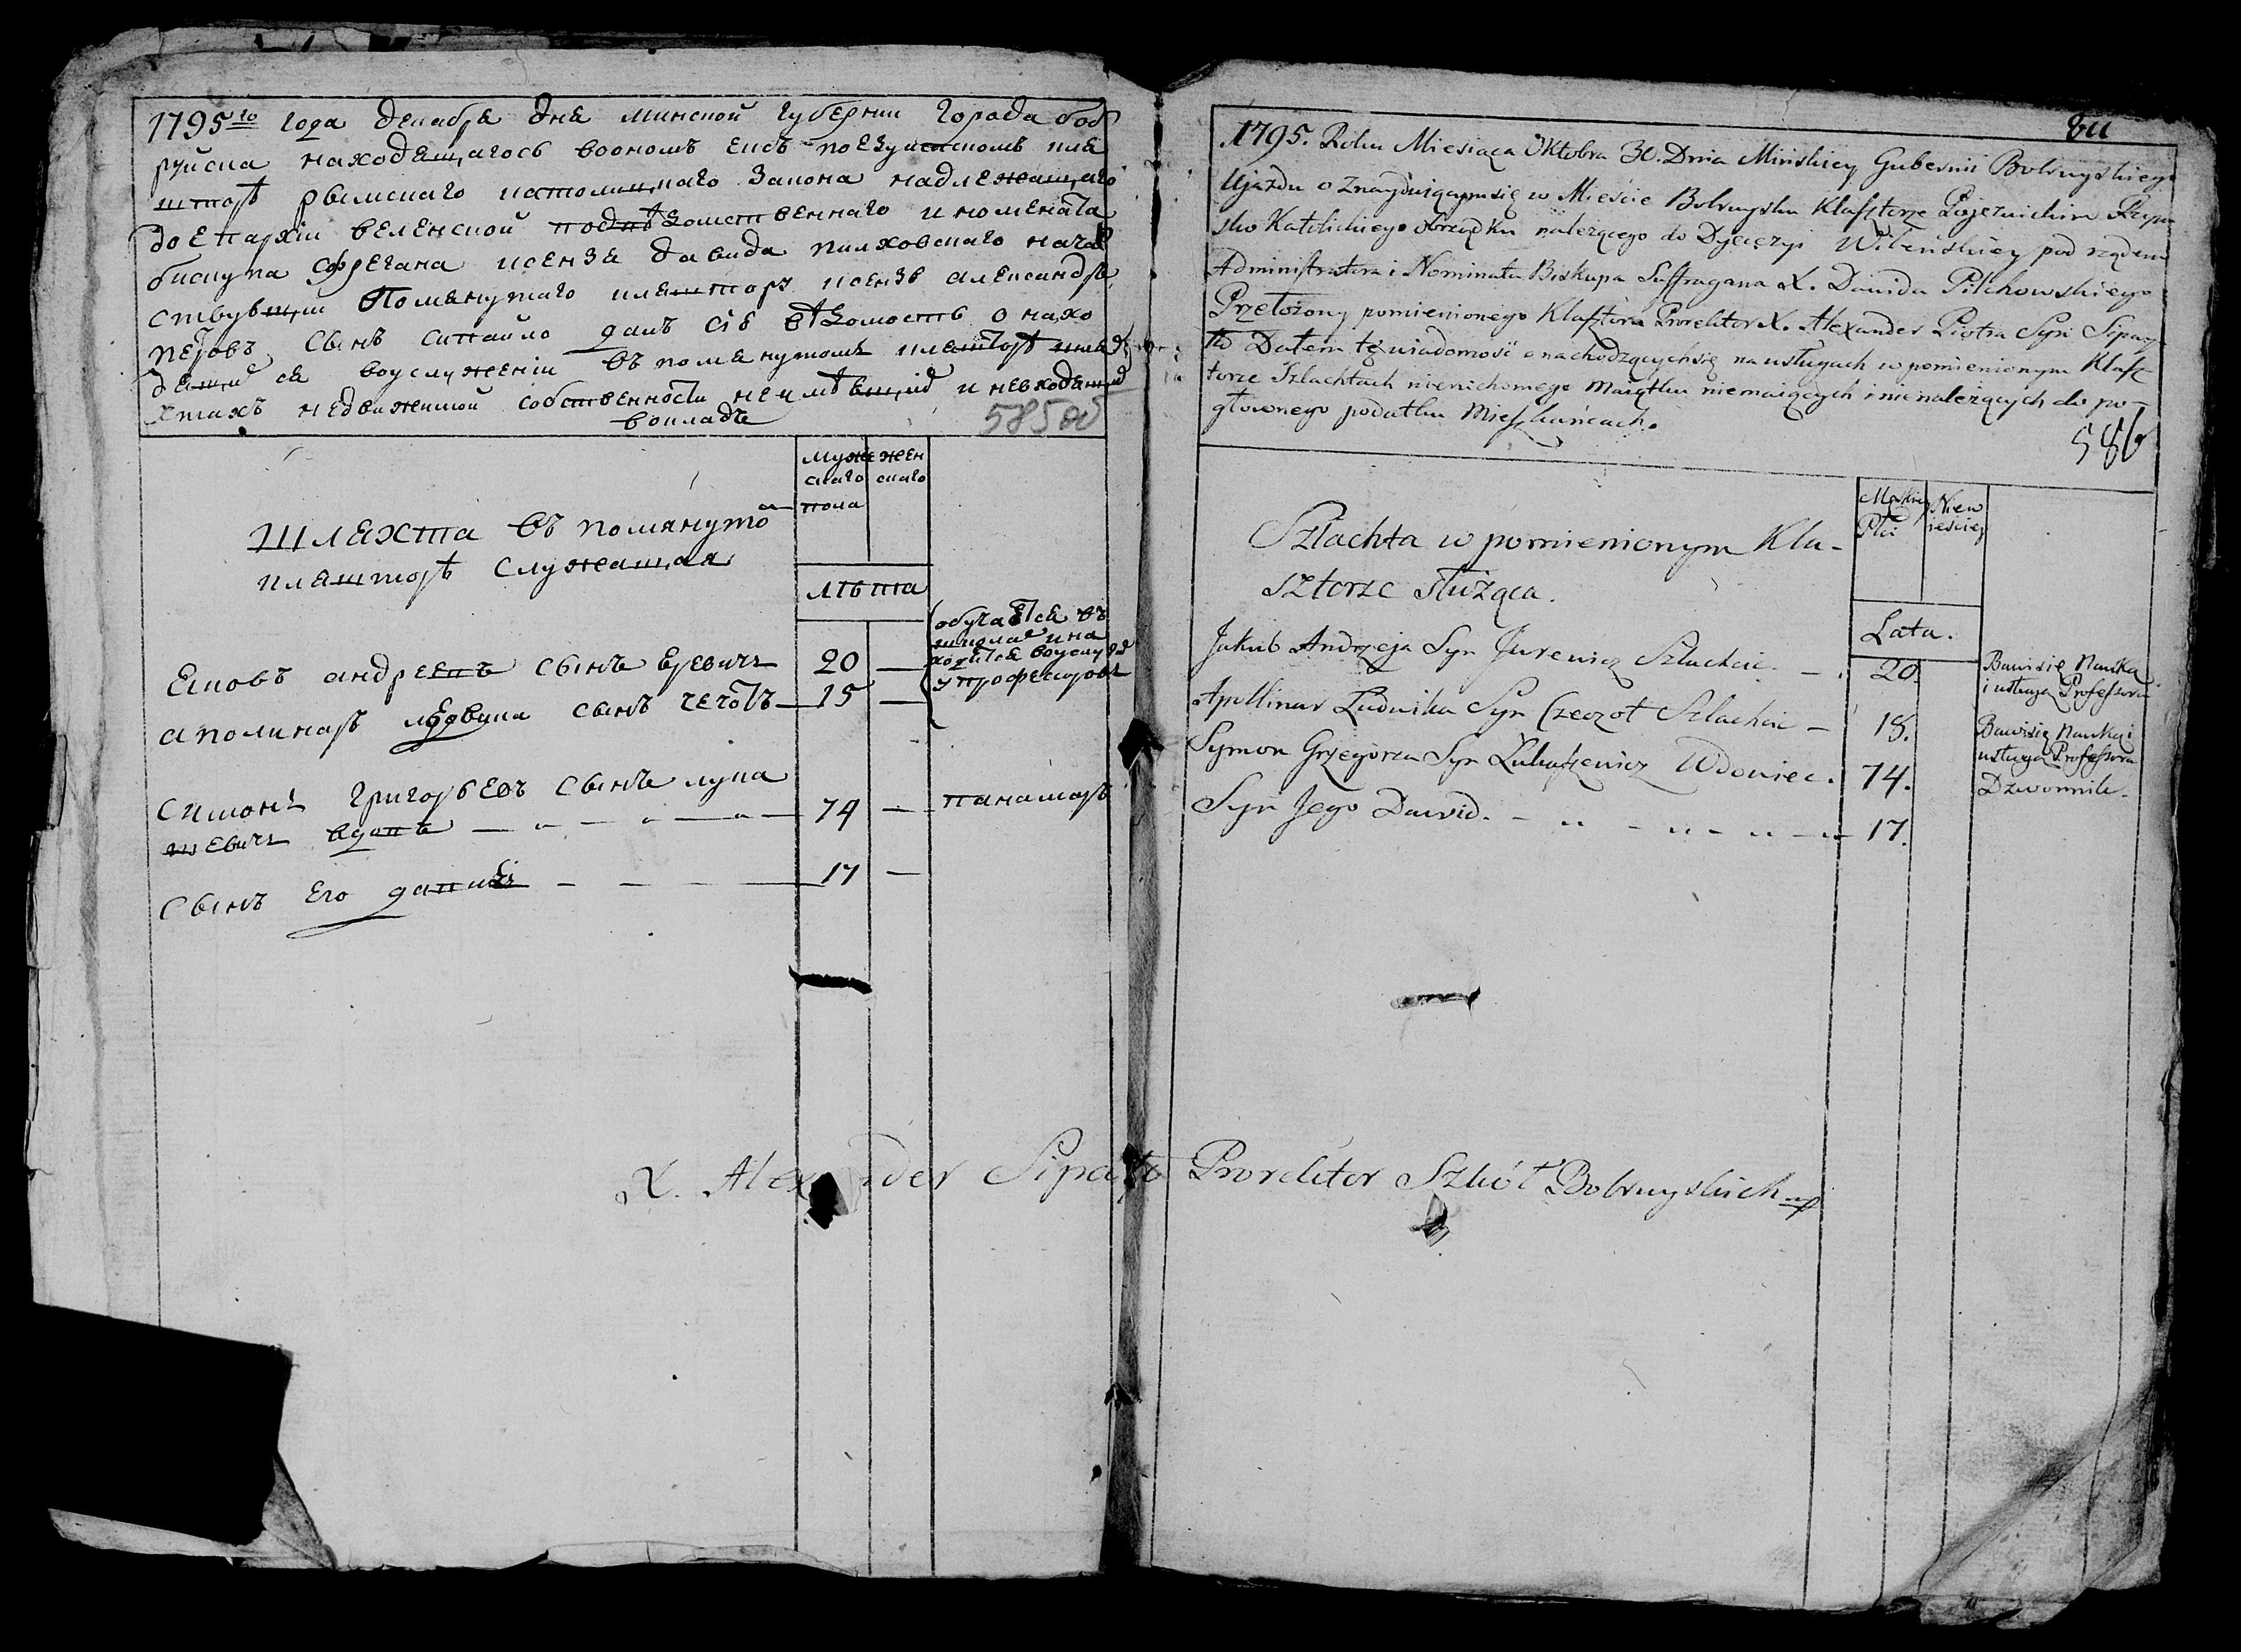 1795го года декабря дня минской губернии города боб
руйска находящагося воономъ ексъ поезуитскомъ кля
шторѣ рымскаго католицкаго закона надлежащаго
до епархіи веленской подвѣдомственнаго и номената
бискупа сфрегана ксенза давида пилховскаго нача
ствующи помянутаго кляштору ксензъ александръ
петровъ сынъ сипайло данъ сія вѣдомость о нахо
дящи ся воуслужении въ помянутомъ кляшторѣ шля
хтахъ недвижимой собственности неимѣющій и невходящий
вокладъ
585об
муже скаго пола
жен скаго
Шляхта въ помянуто
кляшторѣ служащая
лѣта
Яковъ андреевъ сынъ Еревичъ 20 —
аполинаръ людвика сынъ чечотъ — 15 —
обучается въ
школа и на
ходится воуслуже
у профессоровъ
симонъ григорьевъ сынъ лука
шевичъ вдовъ — 74 — панамаръ
сынъ Его давидъ — 17 —
X. Alexander Sipayło Prorektor Szkół Bobruyskich mp
84
1795. Roku Miesiąca Oktobra 30. Dnia Mińskiey Gubernii Bobruyskiego
Ujazdu o Znayduiącym się w Mieście Bobruysku Klasztorze Pojezuickim Rzym
sko Katolickiego obrządku należącego do Dyecezyi Wileńskiey pod rządem
Administratora i Nominata Biskupa Suffragana X. Dawida Pilchowskiego
Przełożony pomienionego Klasztoru Prorektor X. Alexander Piotra Syn Sipay
ło Dałem tę wiadomość o nachodzących się na usługach w pomienionym Klasz
torze Szlachtach nieruchomego maiątku niemaiących i nienależących do po-
głownego podatku Mieszkańcach.
586
Męskiey Płci
Niew ieściey
Szlachta w pomienionym Kla-
sztorze służąca.
Lata.
Jakub Andrzeja Syn Jurewicz Szlachcic. — 20. Bawi się Nauką
i usługą Professora
Apollinar Ludwika Syn Czeczot Szlachcic — 18. Bawi się Nauką i
usługą Professora
Symon Grzegorza Syn Łukaszewicz Wdowiec. 74. Dzwonnik.
Syn Jego Dawid. — 17.